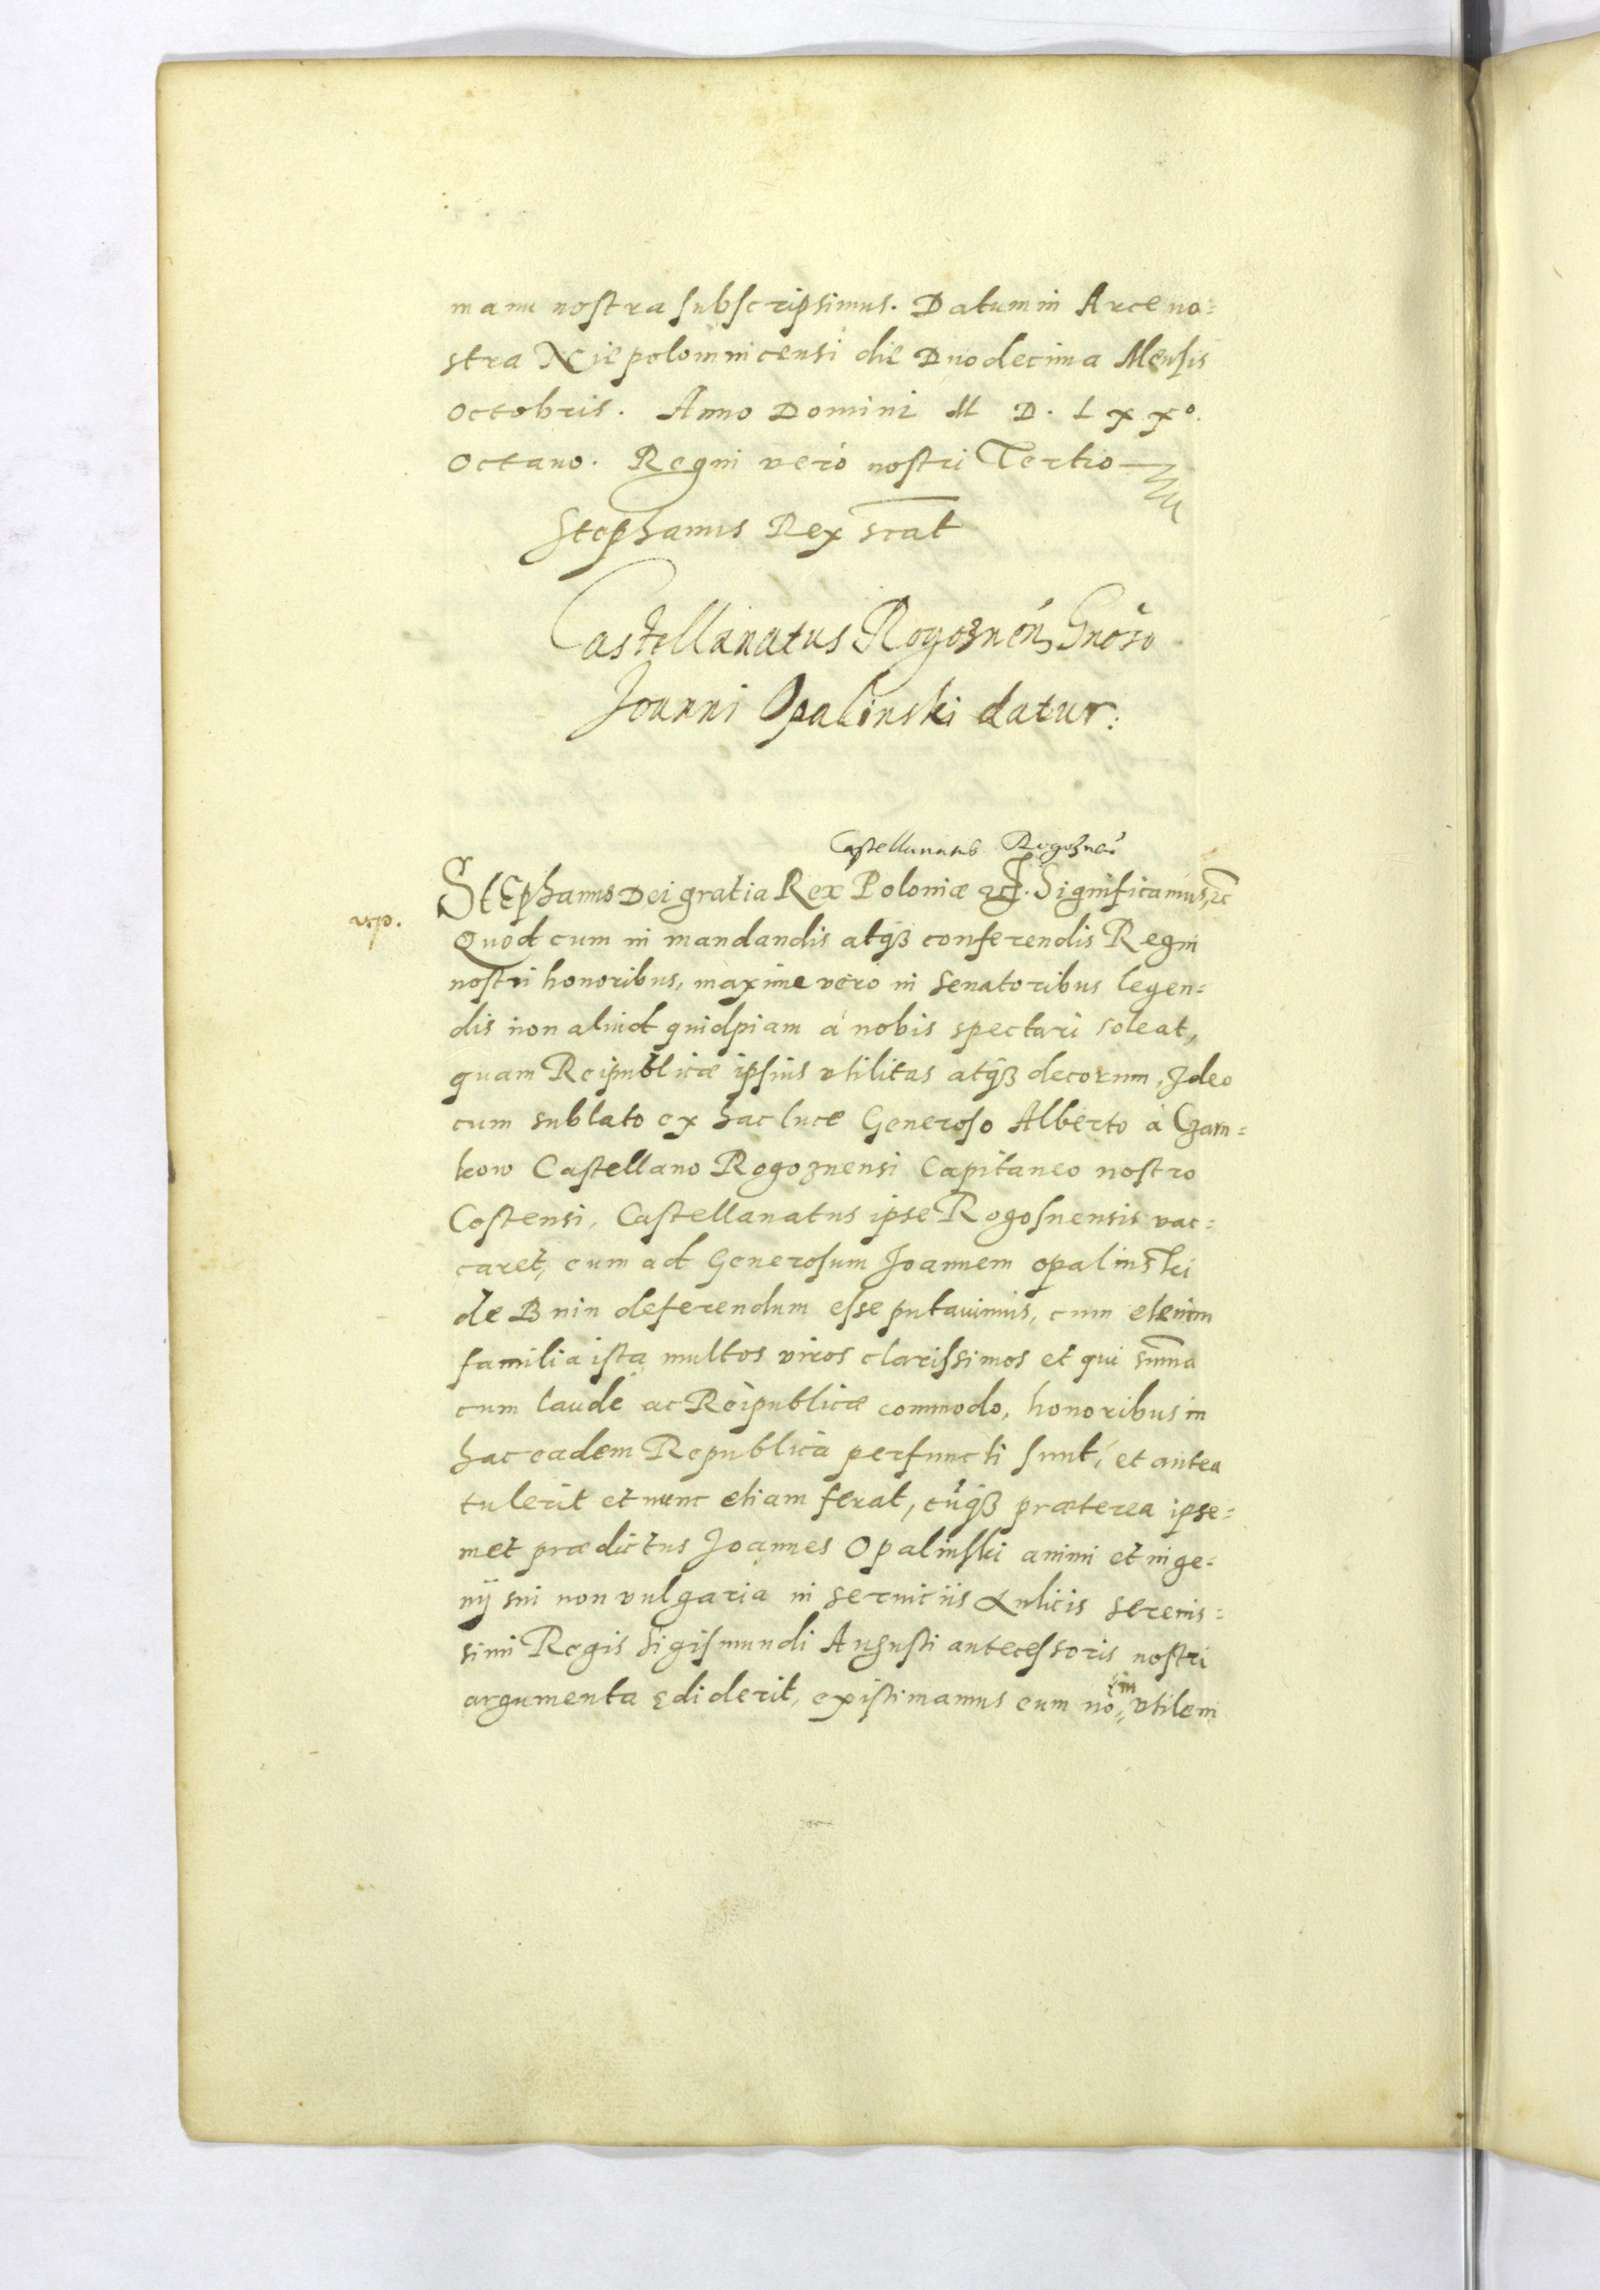 manu nostra subscripsimus. Datum in Arce no=
stra Niepolomnicensi die Duodecima Mensis
Octobris. Anno Domini M D. L x xº.
Octauo. Regni vero nostri Tertio
Stephanus Rex scat
Castellanatus Rogoznen Gnoso
Joanni Opalinski datur:
Castellanatus Rogoznen
Stephanus Dei gratia Rex Poloniæ etc. Significamus, etc
Quod cum in mandandis atq3 conferendis Regni
nostri honoribus, maxime vero in Senatoribus legen=
dis non aliud quidpiam à nobis spectari soleat,
quam Reipublicæ ipsius vtilitas atq3 decorum, Ideo
cum sublato ex hac luce Generoso Alberto à Czarn=
kow Castellano Rogoznensi Capitaneo nostro
Costensi, Castellanatus ipse Rogosnensis vac=
caret, eum ad Generosum Joannem Opalinski
de Bnin deferendum esse putauimus, cum etenim
familia ista multos viros clarissimos et qui suma
cum laude ac Reipublicæ commodo, honoribus in
hac eadem Republica perfuncti sunt, et antea
tulerit et nunc etiam ferat, cuq3 præterea ipse=
met prædictus Joannes Opalinski animi et inge=
nij sui non vulgaria in seruiciis Aulicis serenis=
simi Regis Sigismundi Augusti antecessoris nostri
argumenta ędiderit, existimamus eum no im vtilem